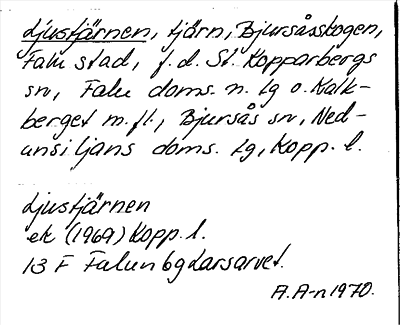 Ljustjärnen, tjärn, Bjursåsskogen,
Falu stad, f.d. St. Kopparbergs
sn, Falu doms. n. tg o. Kalk-
berget m.fl., Bjursås sn, Ned-
ansiljans doms. tg, Kopp. l.
Ljustjärnen
ek (1969) Kopp. l.
13 F Falun 6g Larsarvet.
A.A-n 1970.